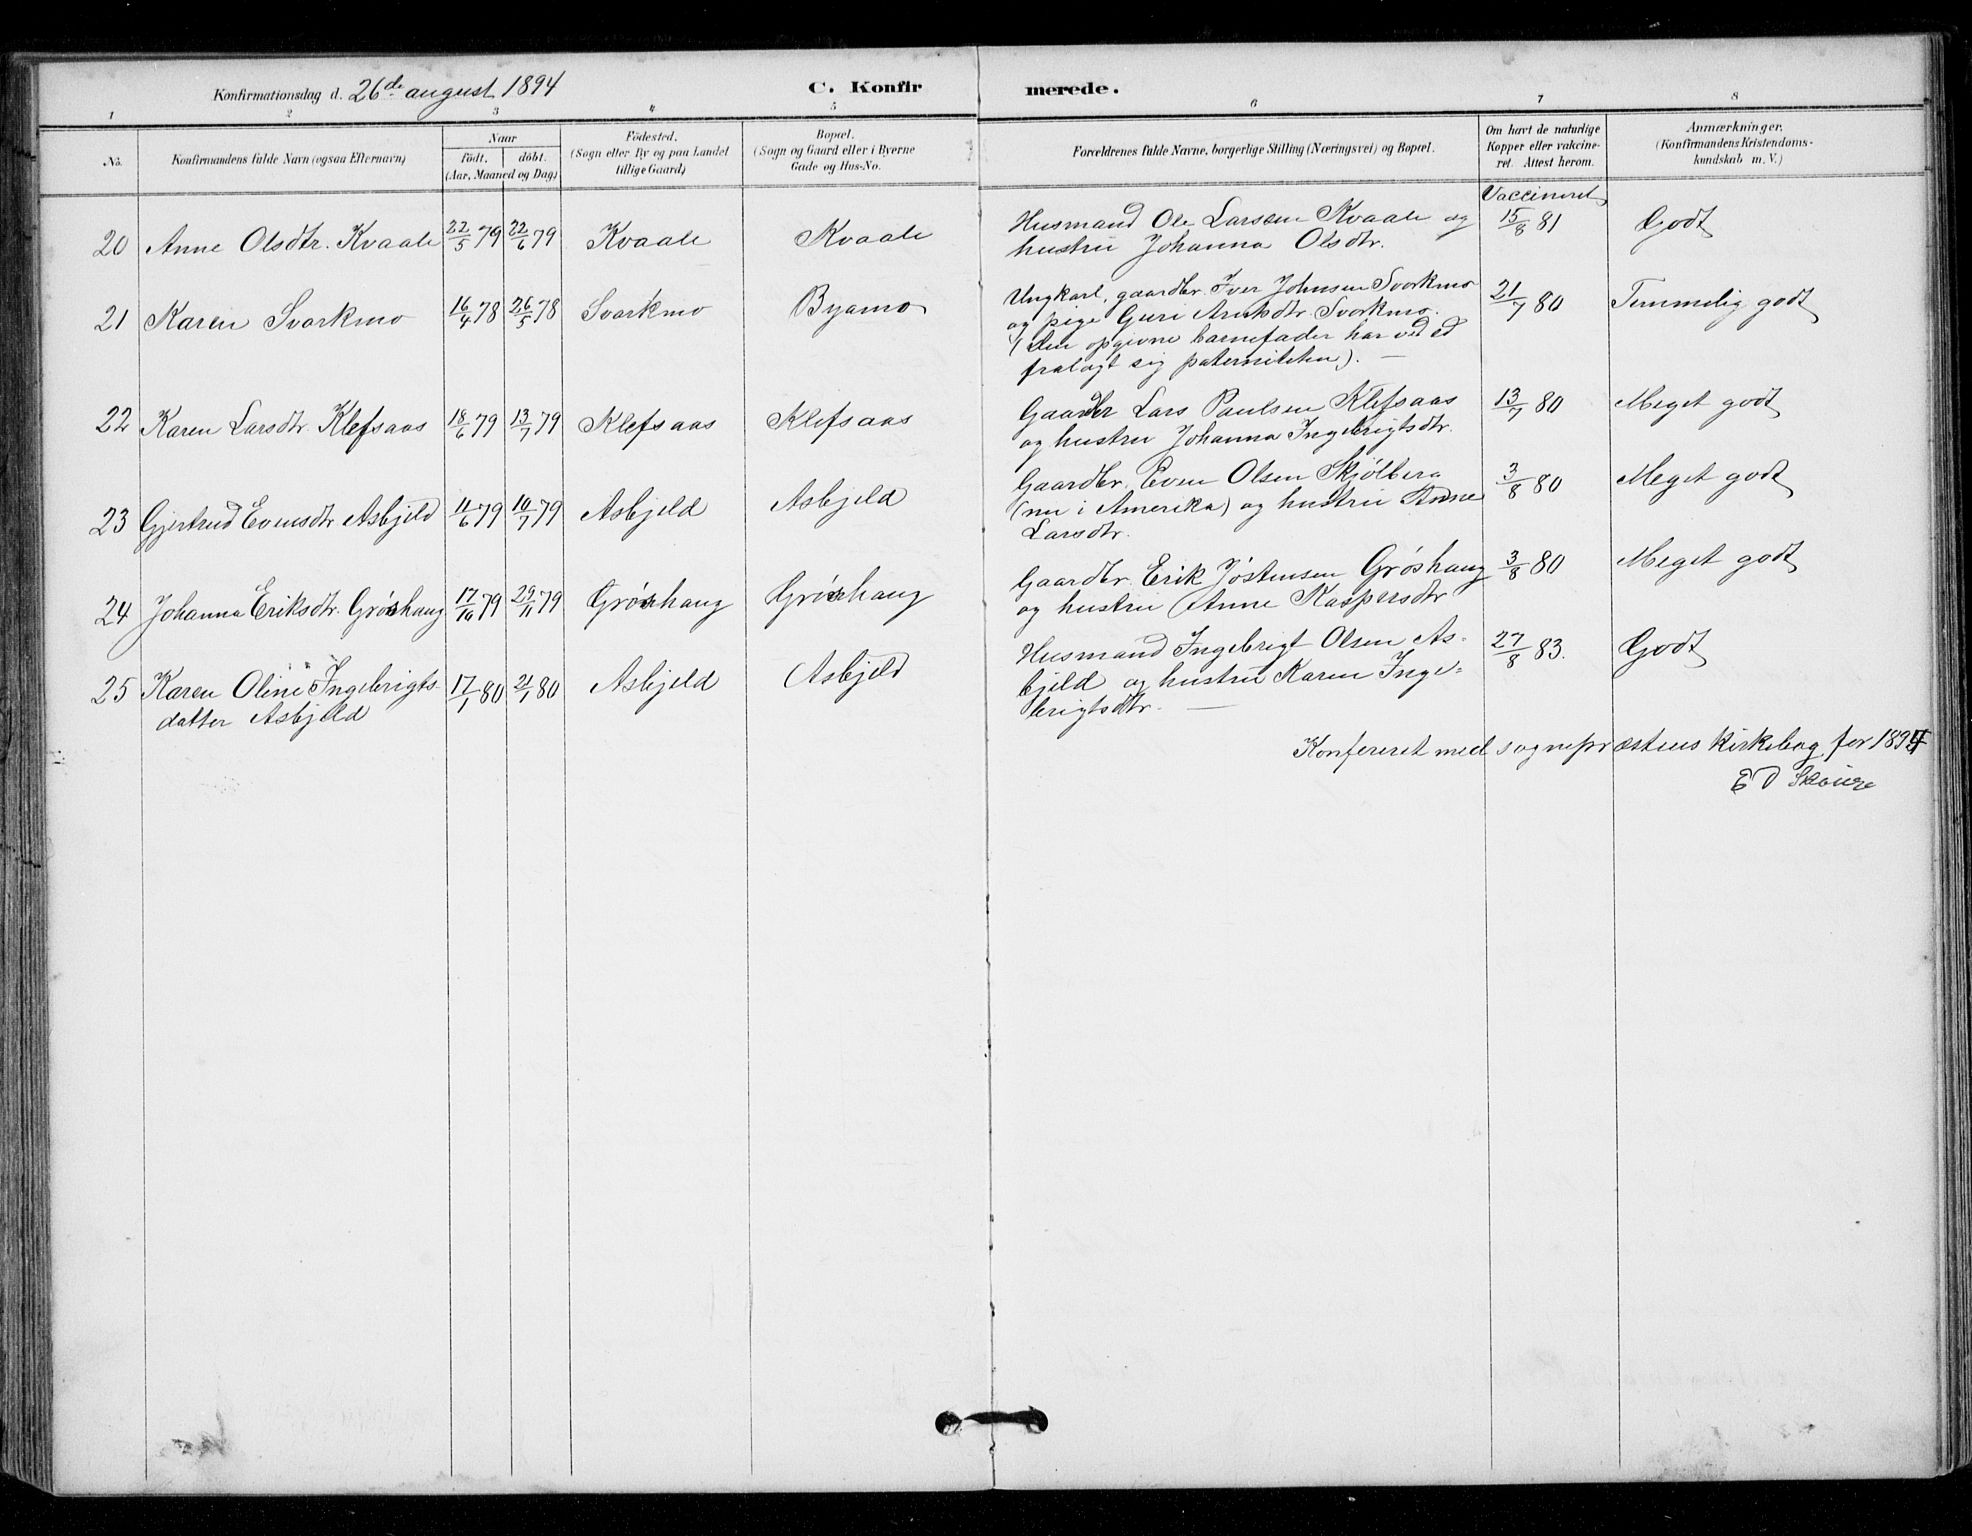 Konfirmationsdag d. 26de august 1894
C. Konfirmerede.
1 2 3 4 5 6 7 8
No. Konfirmandens fulde Navn (ogsaa Efternavn) Naar födt. döbt. (Aar, Maaned og Dag) Födested. (Sogn eller By og paa Landet tillige Gaard) Bopæl. (Sogn og Gaard eller i Byerne Gade og Hus-No. Forældrenes fulde Navne, borgerlige Stilling (Næringsvei) og Bopæl. Om havt de naturlige Kopper eller vakcineret. Attest herom. Anmærkninger. (Konfirmandens Kristendomskundskab m. V.)
Vaccineret
20 Anne Olsdtr. Kvaale 22/5 79 22/6 79 Kvaale Kvaale Husmand Ole Larsen Kvaale og 15/8 81 Godt
hustru Johanna Olsdtr.
21 Karen Svorkmo 16/4 78 26/5 78 Svorkmo Byamo Ungkarl, gaardbr. Iver Johnsen Svorkmo 21/7 80 Temmelig godt
og pige Guri Arntsdtr. Svorkmo.
(den opgivne barnefader har ved ed
fralagt sig paterniteten). —
22 Karen Larsdtr. Klefsaas 18/6 79 13/7 79 Klefsaas Klefsaas Gaardbr Lars Paulsen Klefsaas 13/7 80 Meget godt
og hustru Johanna Ingebrigtsdtr.
23 Gjertrud Evensdtr Asbjeld 11/6 79 10/7 79 Asbjeld Asbjeld Gaardbr. Even Olsen Skjölberg 3/8 80 Meget godt
(nu i Amerika) og hustru Anne
Larsdtr.
24 Johanna Eriksdtr. Gröshaug 17/10 79 29/11 79 Gröshaug Gröshaug Gaardbr. Erik Jöstensen Gröshaug 3/8 80 Meget godt
og hustru Anne Kaspersdtr
25 Karen Oline Ingebrigts- 17/1 80 80 Asbjeld Asbjeld Husmand Ingebrigt Olsen As- 27/8 83. Godt
datter Asbjeld bjeld og hustru Karen Inge-
brigtsdtr. —
Konfereret med sognepræstens kirkebog for 1894
E D